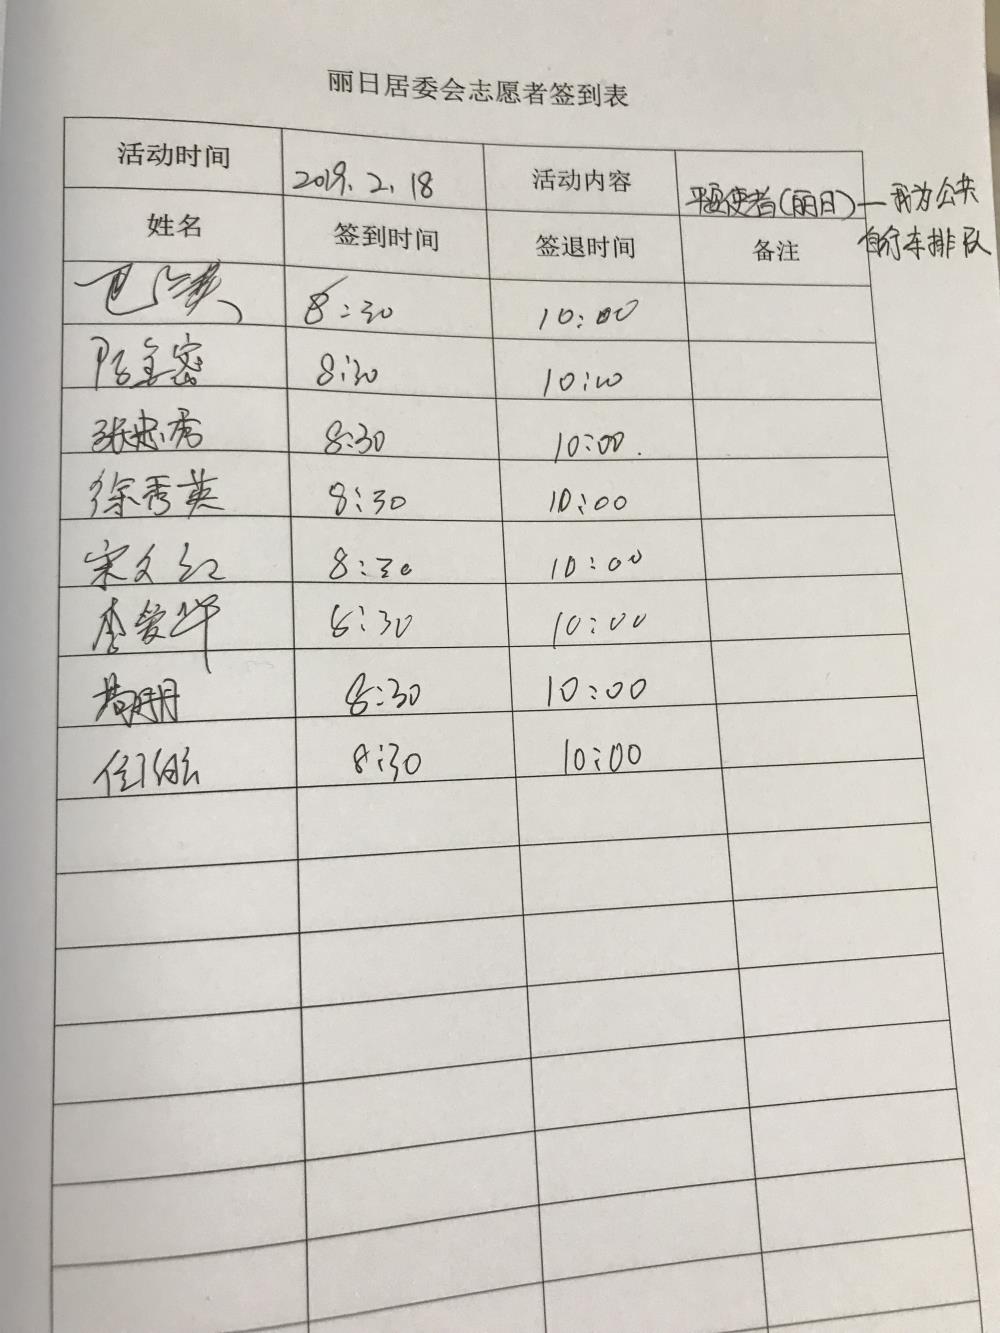 丽日居委会志愿者签到表
活动时间 2019.2.18 活动内容 平安使者(丽日)—我为公共
自行车排队
姓名 签到时间 签退时间 备注
8:30 10:00
8:30 10:00
张忠秀 8:30 10:00.
徐秀英 8:30 10:00
宋文红 8:30 10:00
李爱华 8:30 10:00
8:30 10:00
8:30 10:00